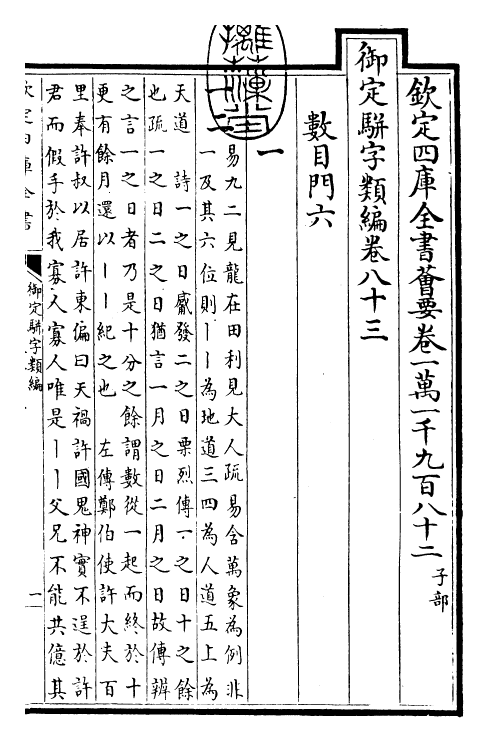 欽定四庫全書薈要卷一萬一千九百八十二 子部
御定駢字類編卷八十三
數目門六
一
一二
易九二見龍在田利見大人疏易含萬象為例非
一及其六位則丨丨為地道三四為人道五上為
天道 詩一之日觱發二之日栗烈傳一之日十之餘
也疏一之日二之日猶言一月之日二月之日故傳辨
之言一之日者乃是十分之餘謂數從一起而終於十
更有餘月還以丨丨紀之也 左傳鄭伯使許大夫百
里奉許叔以居許東偏曰天禍許國鬼神實不逞於許
君而假手於我寡人寡人唯是丨丨父兄不能共億其
欽定四庫全書
御定駢字類編
一